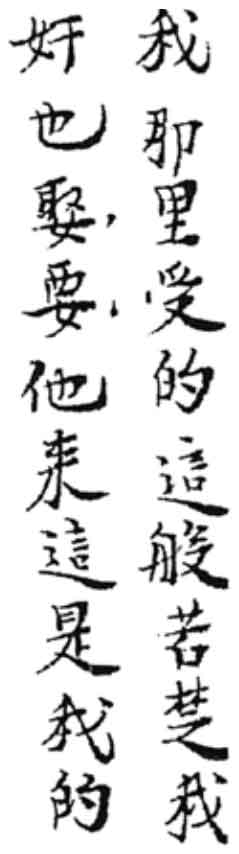 我那里受的這般苦楚我
奸也娶要他来這是我的